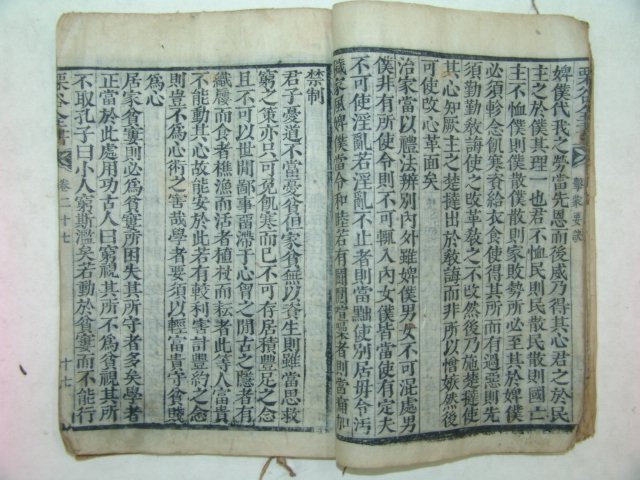 婢僕代我之勞當先恩而後威乃得其心君之於民
主之於僕其理一也君不恤民則民散民散則國亡
主不恤僕則僕散僕散則家敗勢所必至其於婢僕
必須軫念飢寒資給衣食使得其所而有過惡則先
須勤勤敎誨使之改革敎之不改然後乃施楚撻使
其心知厥主之楚撻出於敎誨而非所以憎嫉然後
可使改心革面矣
治家當以禮法辨別內外雖婢僕男女不可混處男
僕非有所使令則不可輒入內女僕皆當使有定夫
不可使淫亂若淫亂不止者則當黜使別居毋令汚
穢家風婢僕當令和睦若有鬪鬩喧噪者則當痛加
禁制
君子憂道不當憂貧但家貧無以資生則雖當思救
窮之策亦只可免飢寒而已不可存居積豐足之念
且不可以世間鄙事留滯于心胷之間古之隱者有
織屨而食者樵漁而活者植杖而耘者此等人富貴
不能動其心故能安於此若有較利害計豐約之念
則豈不爲心術之害哉學者要須以輕富貴守貧賤
爲心
居家貧窶則必爲貧窶所困失其所守者多矣學者
正當於此處用功古人曰窮視其所不爲貧視其所
不取孔子曰小人窮斯濫矣若動於貧窶而不能行
栗谷全書
卷二十七
十七
栗谷全書
擊蒙要訣